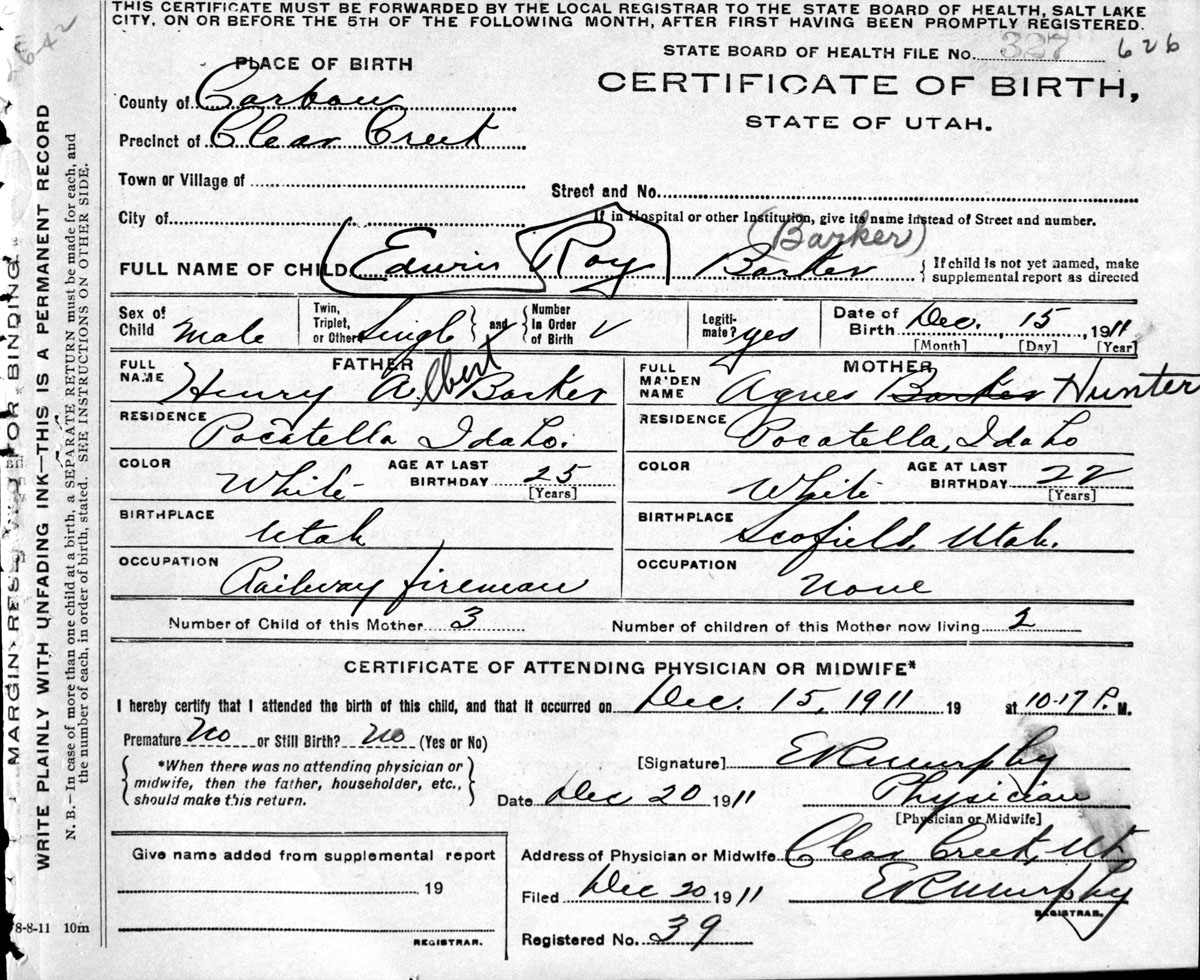 THIS CERTIFICATE MUST BE FORWARDED BY THE LOCAL REGISTRAR TO THE STATE BOARD OF HEALTH, SALT LAKE
CITY, ON OR BEFORE THE 5TH OF THE FOLLOWING MONTH, AFTER FIRST HAVING BEEN PROMPTLY REGISTERED.
642
STATE BOARD OF HEALTH FILE No. 327 626
PLACE OF BIRTH
CERTIFICATE OF BIRTH,
STATE OF UTAH.
County of Carbon
Precinct of Clear Creek
Town or Village of
Street and No.
City of
If in Hospital or other Institution, give its name instead of Street and number.
(Barker)
FULL NAME OF CHILD Edwin Roy Barker
{ If child is not yet named, make
supplemental report as directed
Sex of
Child Male
Twin,
Triplet,
or Other Singl } and { Number
in Order
of Birth
Legiti-
mate? yes
Date of
Birth Dec. 15, 1911
[Month] [Day] [Year]
FATHER
FULL
NAME Henry Albert Barker
MOTHER
FULL
MAIDEN
NAME Agnes Barker Hunter
RESIDENCE Pocatella Idaho.
RESIDENCE Pocatella, Idaho
COLOR White
AGE AT LAST
BIRTHDAY 25
[Years]
COLOR White
AGE AT LAST
BIRTHDAY 22
[Years]
BIRTHPLACE Utah
BIRTHPLACE Scofield, Utah.
OCCUPATION Railway fireman
OCCUPATION None
Number of Child of this Mother 3
Number of children of this Mother now living 2
CERTIFICATE OF ATTENDING PHYSICIAN OR MIDWIFE*
I hereby certify that I attended the birth of this child, and that it occurred on Dec. 15, 1911 19 at 10-17 P. M.
Premature No or Still Birth? No (Yes or No)
{ *When there was no attending physician or
midwife, then the father, householder, etc.,
should make this return. }
[Signature] E R Murphy
Date Dec 20 1911
Physician
[Physician or Midwife]
Give name added from supplemental report
19
REGISTRAR.
Address of Physician or Midwife Clear Creek, Ut
Filed Dec 20 1911
E R Murphy
REGISTRAR.
Registered No. 39
8-8-11 10m
MARGIN RESERVED FOR BINDING.
WRITE PLAINLY WITH UNFADING INK—THIS IS A PERMANENT RECORD
N. B.—In case of more than one child at a birth, a SEPARATE RETURN must be made for each, and
the number of each, in order of birth, stated. SEE INSTRUCTIONS ON OTHER SIDE.